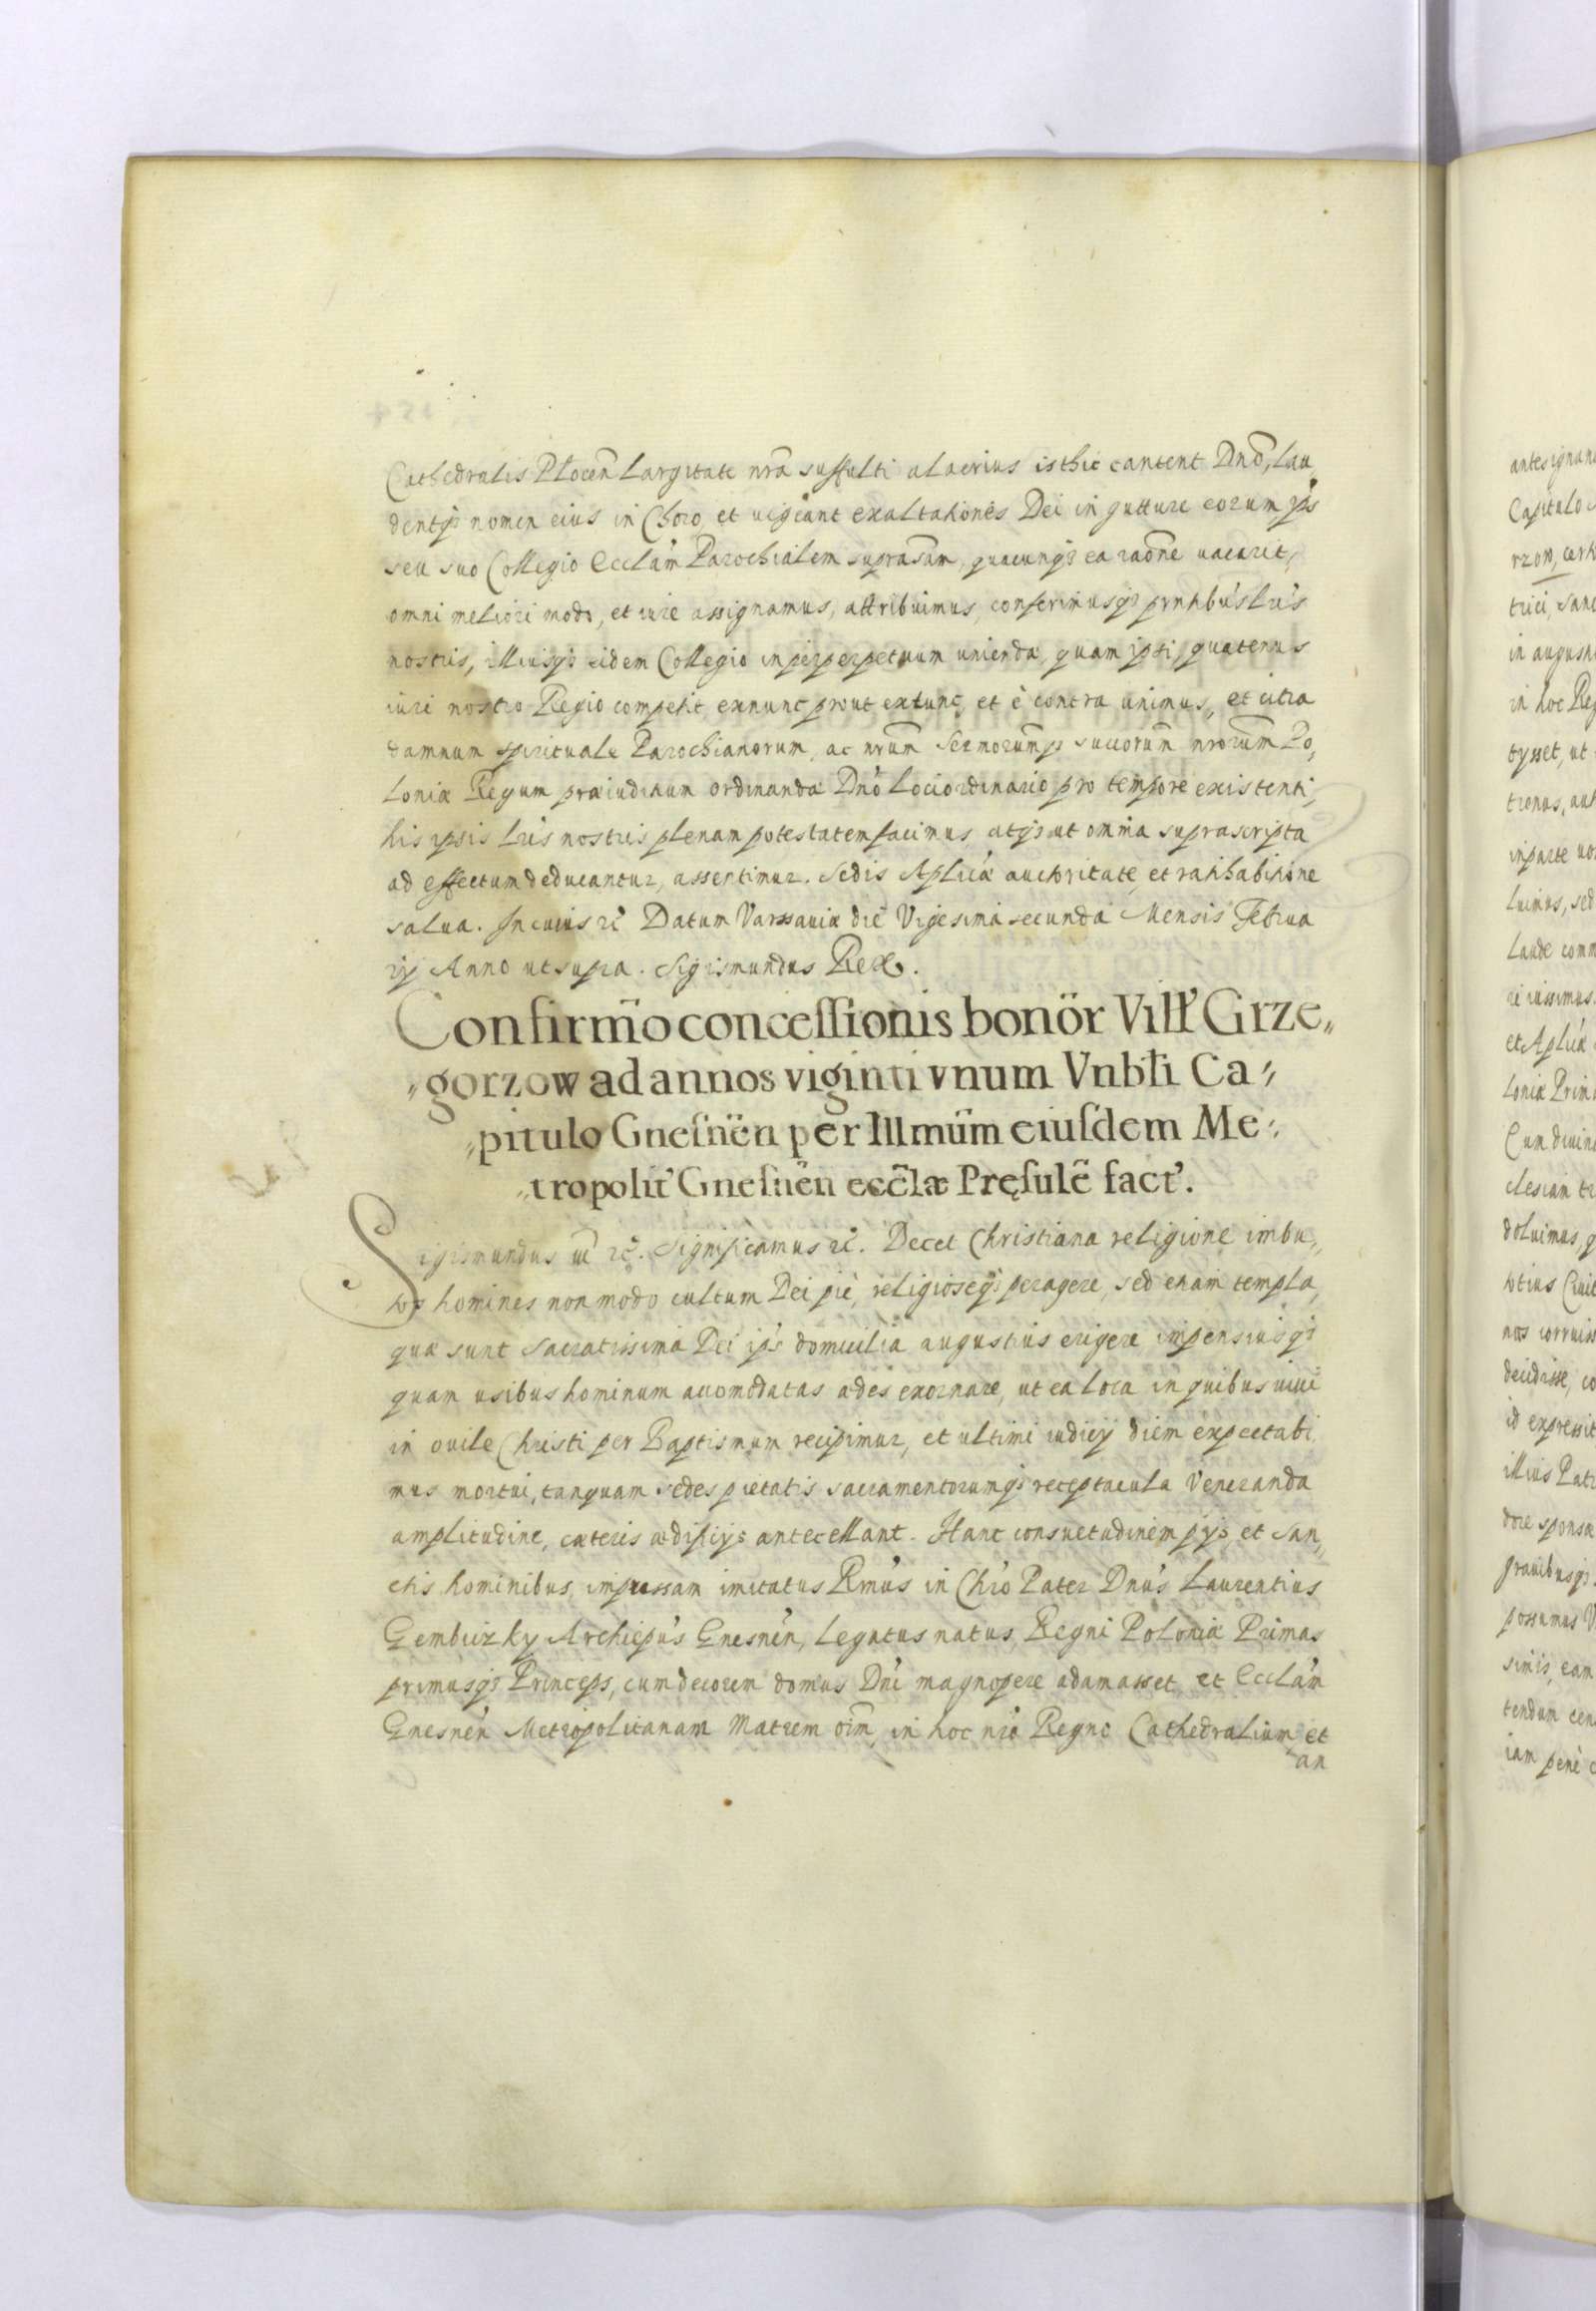 Cathedralis Plocen̄ Largitate nr̄a suffulti alacrius isthic cantent Dnō, Lau„
dentq; nomen eius in Choro, et uigeant exaltationes Dei in gutture eorum, ip̄s
seu suo Collegio Eccl̄am Parochialem supras̄am, quacunq; ea raōne uacarit,
omni meliori modo, et iure assignamus, attribuimus, conferimusq; pr̄ntibus Lr̄is
nostris, illiusq; eidem Collegio in perperpetuum unienda, quam ipsi, quatenus
iuri nostro Regio competit, exnunc prout extunc, et è contra unimus, et citra
damnum spirituale Parochianorum, ac nr̄um Ser̄norumq; succorum̄ nrorum̄ Po„
loniæ Regum præiudicium ordinanda Dnō Loci ordinario pro tempore existenti,
his ipsis Lr̄is nostris plenam potestatem facimus, atq; ut omnia suprascripta
ad effectum deducantur, assentimur. Sedis Aplicæ auctoritate, et ratihabitione
salua. In cuius rē Datum Varssauiæ die Vigesima secunda Mensis Februa
rij Anno ut supra. Sigismundus Rex.
Confirmo͞ concessionis bonor͞ Vill' Grze„
„gorzow ad annos viginti vnum Vnbl̄i Ca„
„pitulo Gnesnen͞ per Illmum͞ eiusdem Me„
„tropolit' Gnesnen͞ eccl̄æ Pręsulē fact'.
Sigismundus iii rē. Significamus rē. Decet Christiana religione imbu„
tos homines non modo cultum Dei piè, religioseq; peragere, sed etiam templa,
quæ sunt sacratissima Dei ip̄s domicilia augustius erigere impensiusq;
quam usibus hominum accomodatas ædes exornare, ut ea loca in quibus uiui
in ouile Christi per Baptismum recipimur, et ultimi iudicij diem expectabi
mus mortui, tanquam sedes pietatis sacramentorumq; receptacula Veneranda
amplitudine, cæteris ædificijs antecellant. Hanc consuetudinem pijs, et san„
ctis hominibus, impressam imitatus Rmūs in Chrō Pater Dnūs Laurentius
Gembiczky Archiepūs Gnesnēn, Legatus natus Regni Poloniæ Primas
primusq; Princeps, cum decorem domus Dn̄i magnopere adamasset, et Eccl̄am
Gnesnēn Metropolitanam Matrem oīm, in hoc nrō Regno Cathedralium et
an